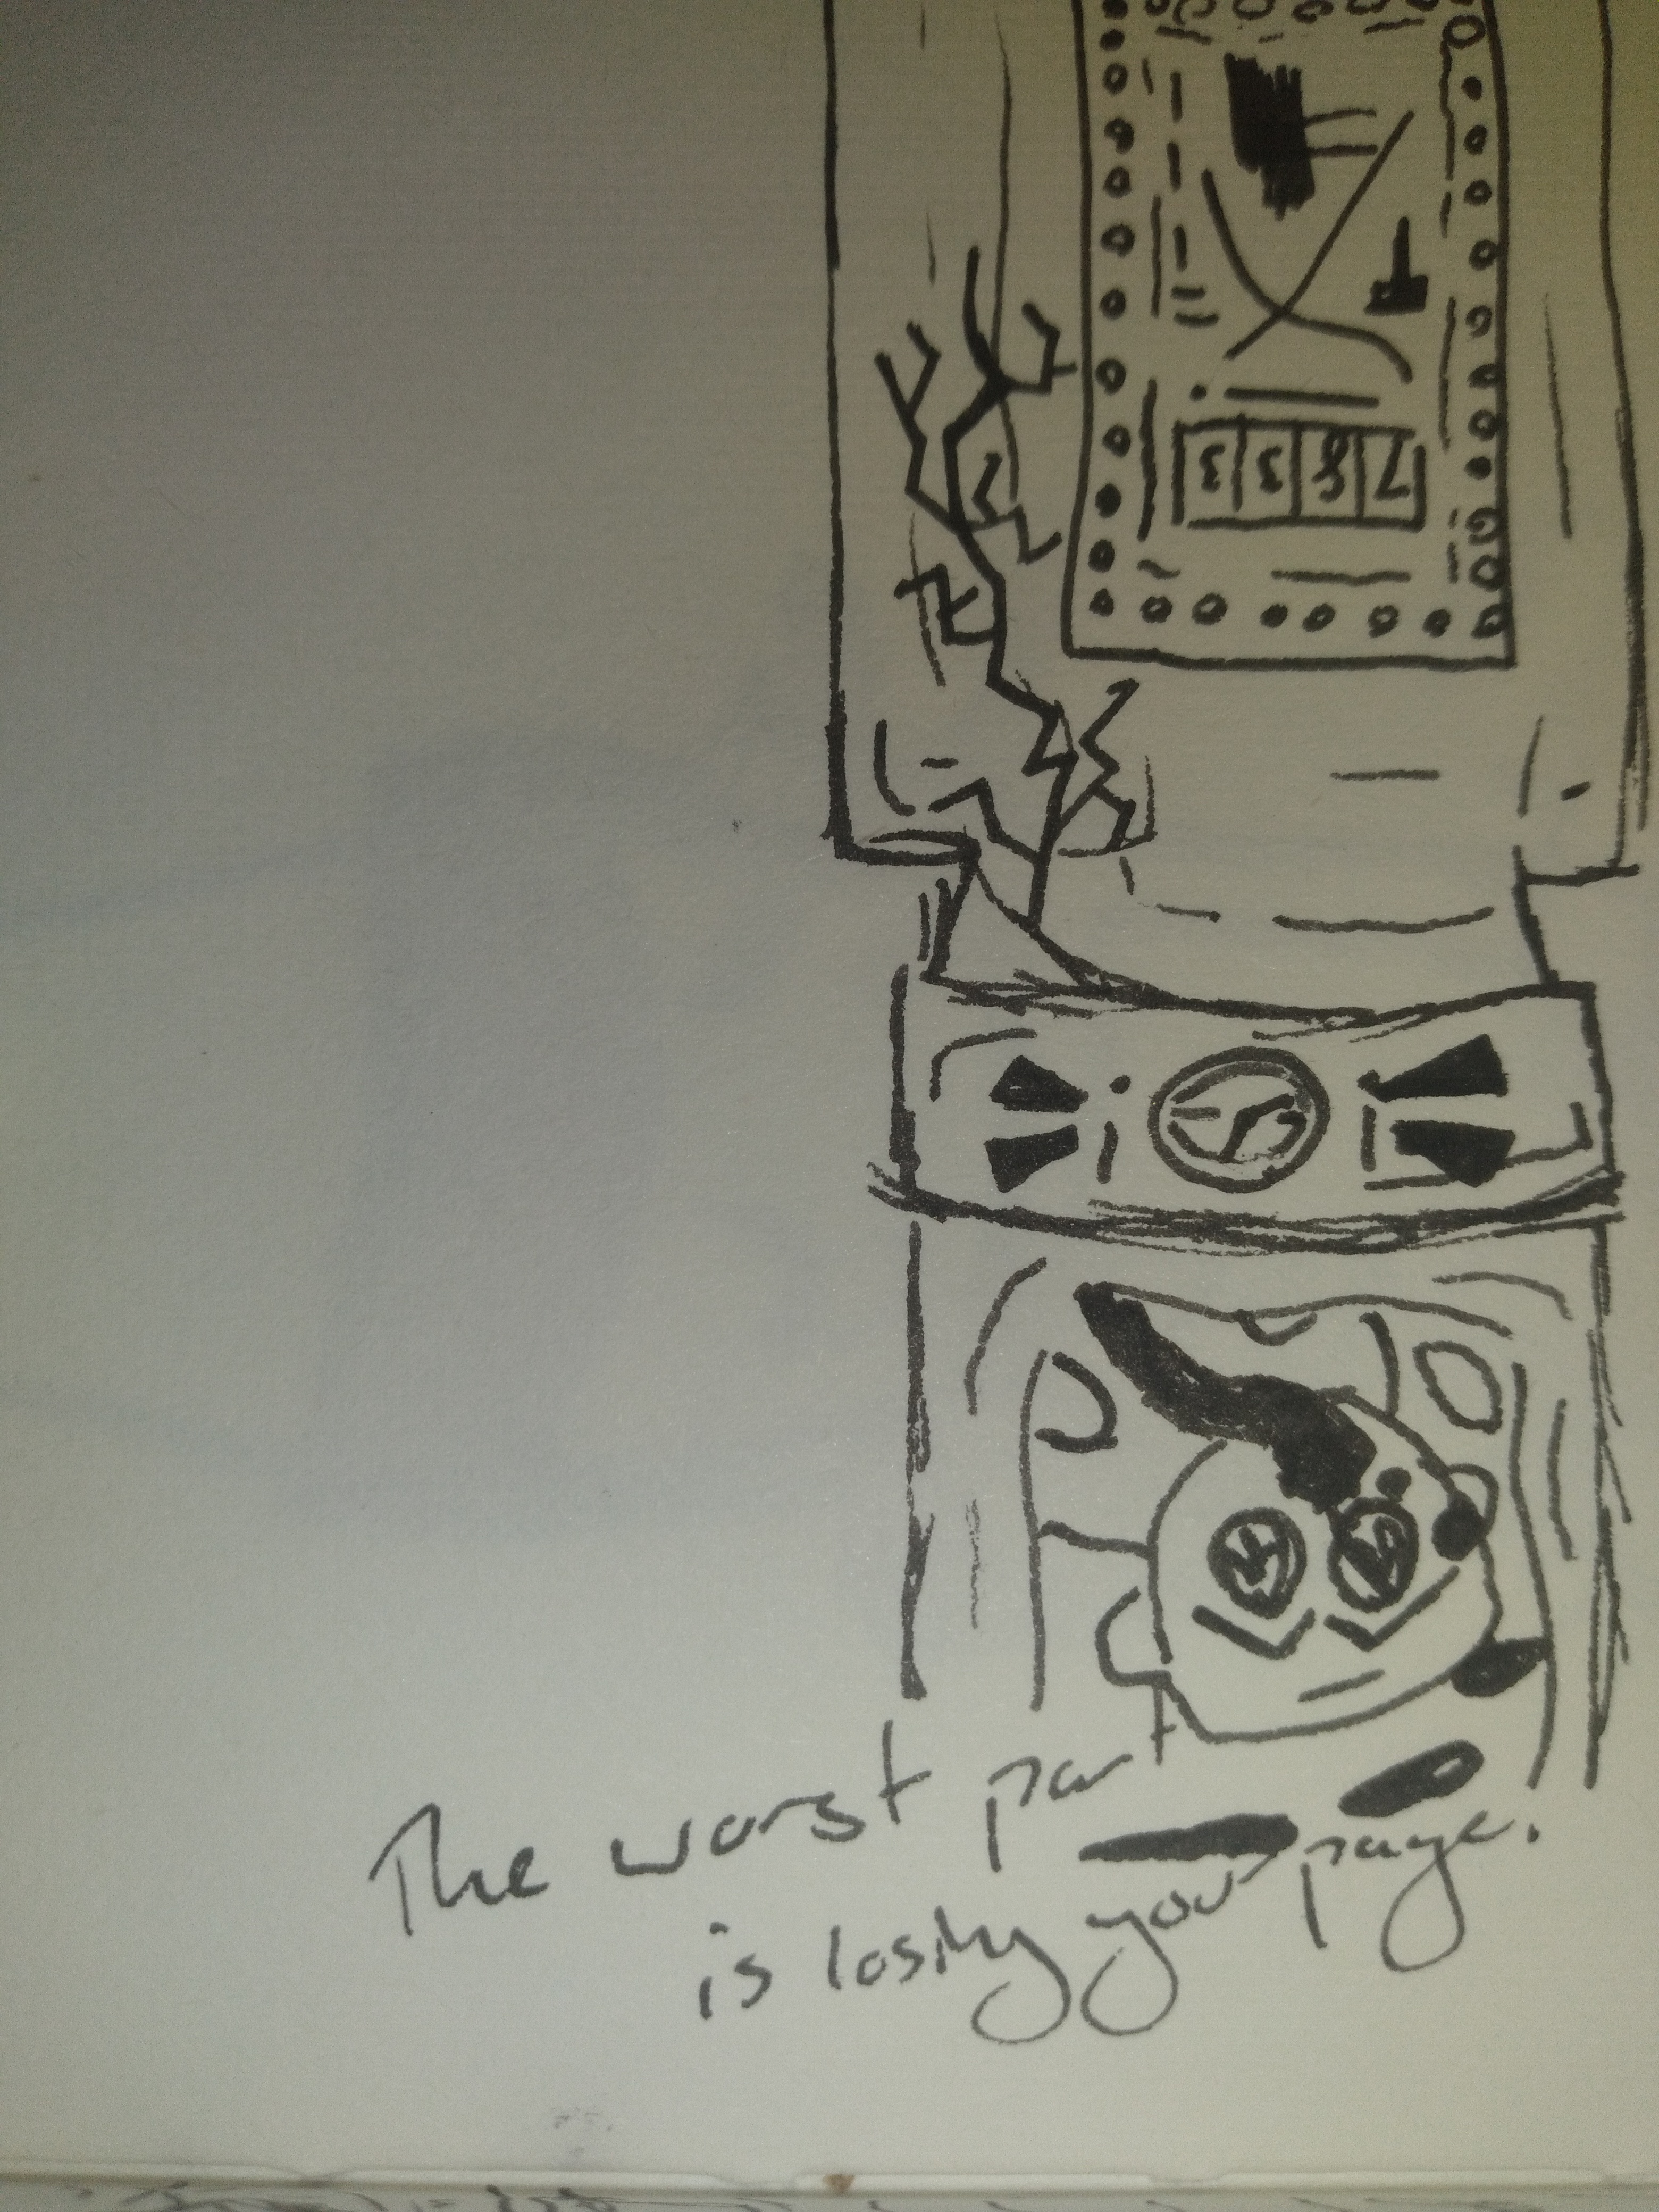 The worst part
is losing your page.